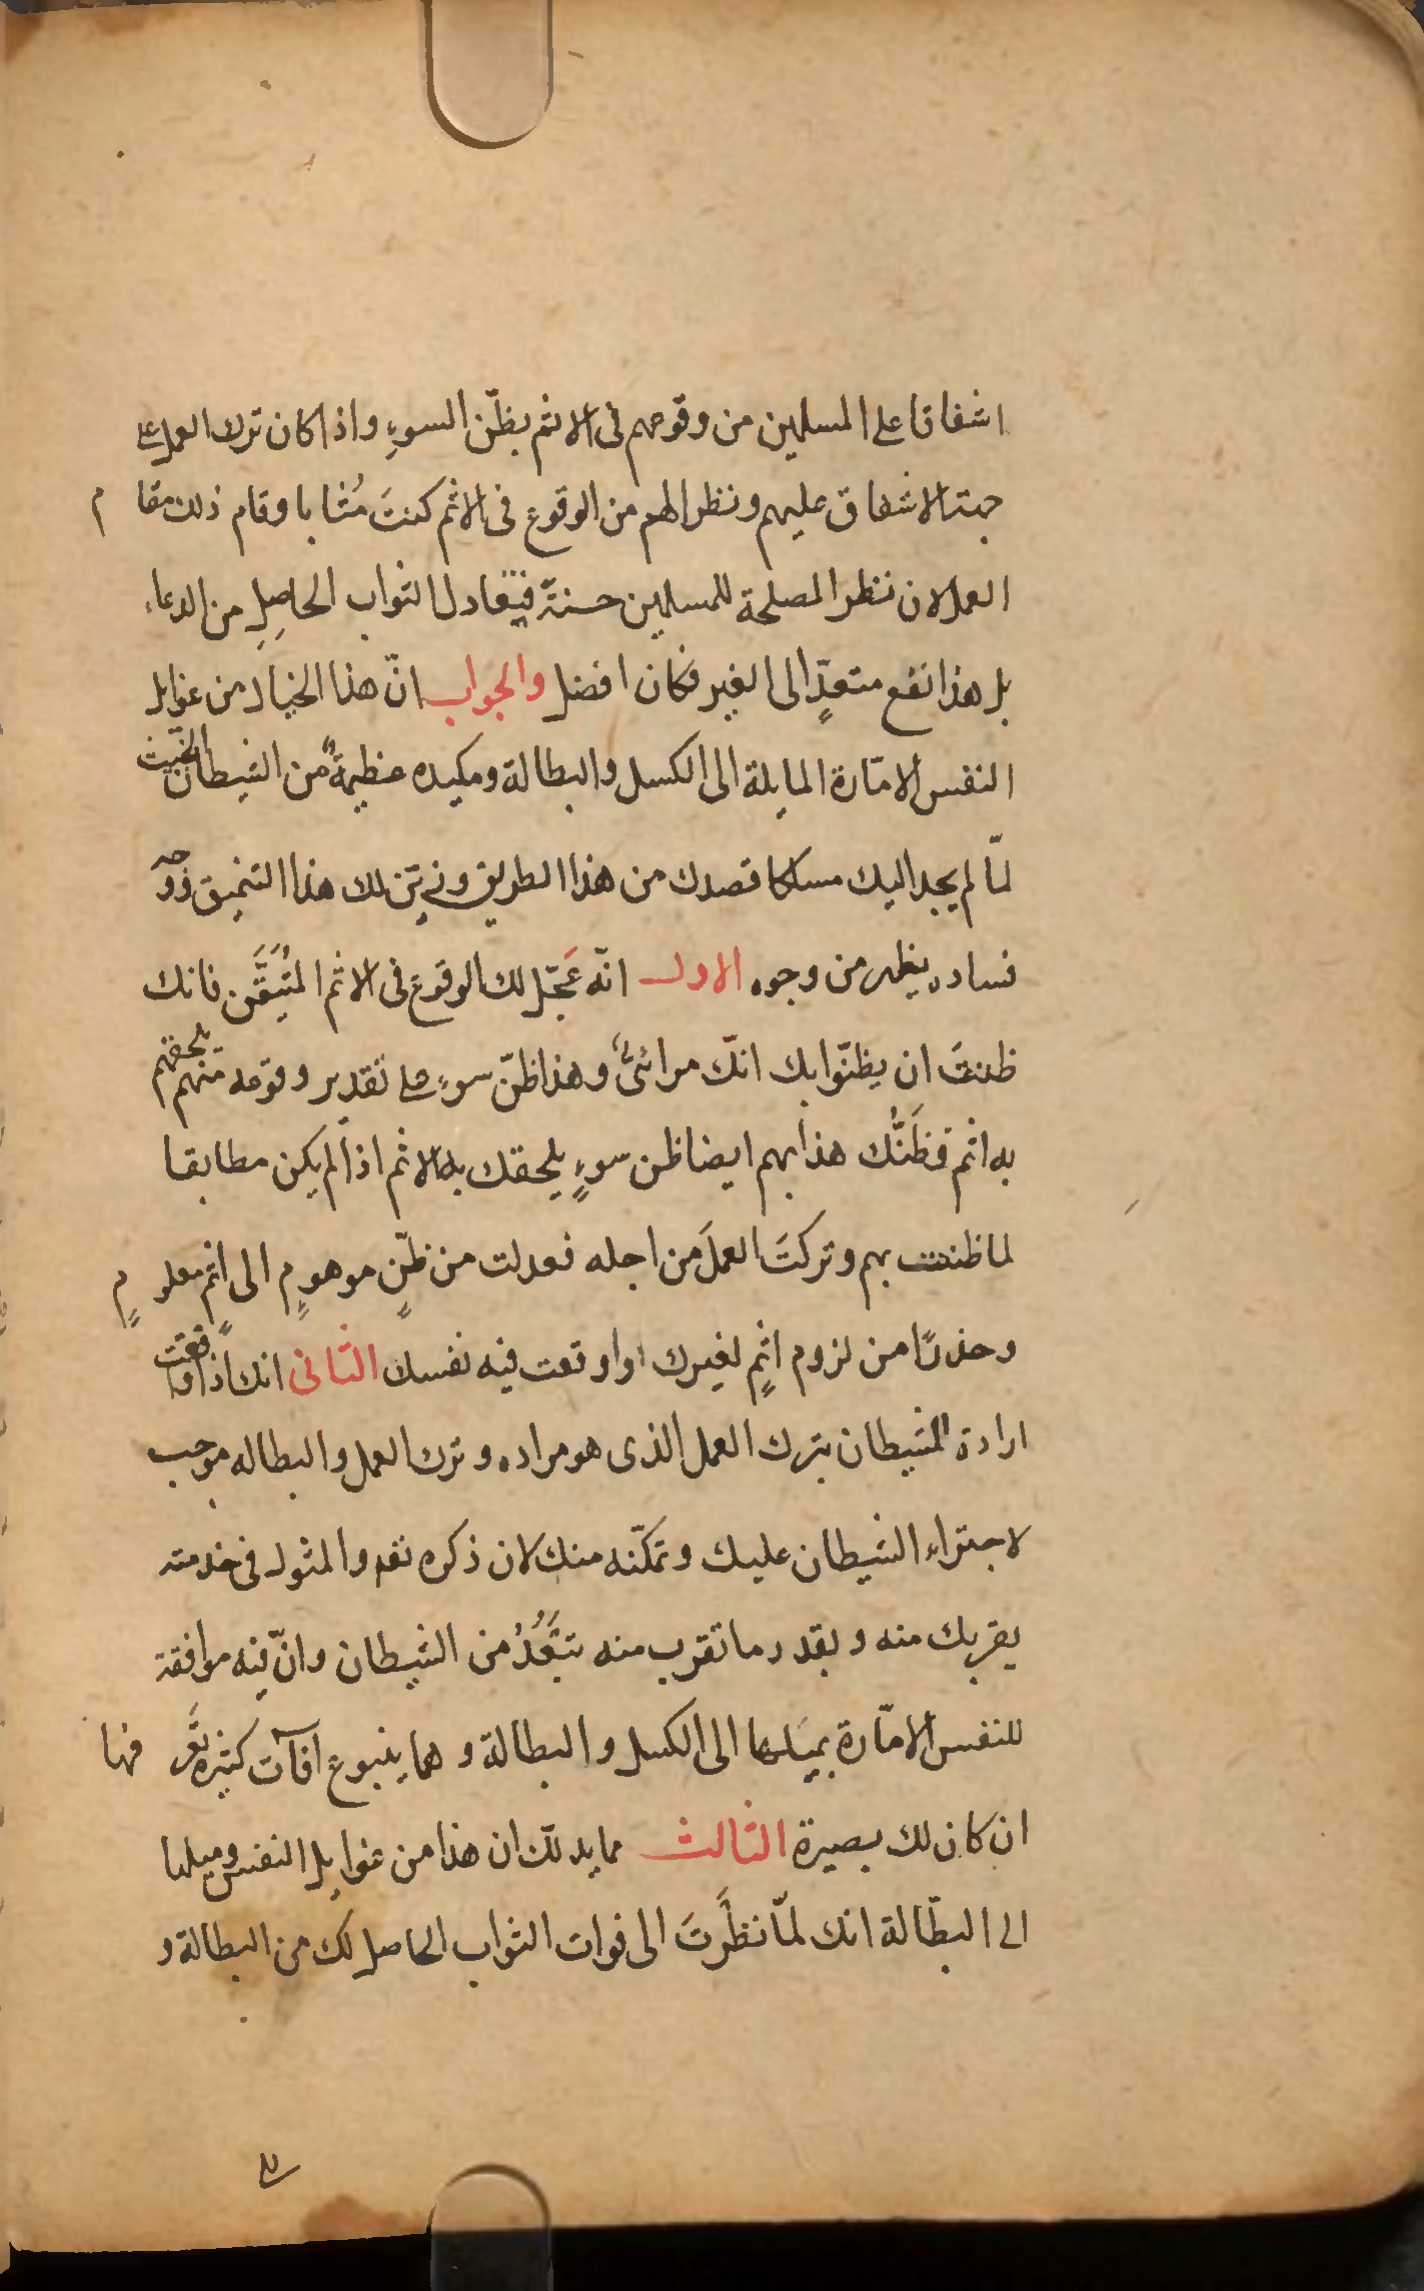 اشفاقا على المسلمين من وقوعهم فى الاثم بظنّ السوءِ واذا كان ترك العمل على
جهة الاشفاق عليهم ونظرا لهم من الوقوع فى الاثم كنتَ مُثابا وقام ذلك مقام
العمل لان نظر المصلحة للمسلمين حسنةٌ فيعادل الثواب الحاصِلِ من الدعاء
بل هذا نفع متعدٍّ الى الغير فكان افضل والجواب انّ هذا الخيال من غوايل
النفس الامّارة المايلة الى الكسل والبطالة ومكيده عظيمةٌ من الشيطان الخبيث
لمّا لم يجد اليك مسلكا قصدك من هذا الطريق وزيّن لك هذا التنميق ووجه
فساده يظهر من وجوه الاول انّه عَجّل لك الوقوع فى الاثم المُتيَقَّن فانك
ظننتَ ان يظنّوا بك انّك مرائىٌ وهذا ظنّ سوءٍ على تقدير وقوعه منهم يلحقهم
به اثم فظَنُّك هذا بهم ايضا ظن سوءٍ يلحقك به الاثم اذا لم يكن مطابقا
لما ظننت بهم وتركتَ العملَ من اجله فعدلت من ظنٍّ موهومٍ الى اثمٍ معلومٍ
وحذرًا من لزوم اثمٍ لغيرك اوقعت فيه نفسك الثانى انك اذا وافقت
ارادة الشيطان بترك العمل الذى هو مراده وترك العمل والبطاله موجب
لاجتراء الشيطان عليك وتمكّنه منك لان ذكره تعه والمثول فى خدمته
يقربك منه وبقدر ما تقرب منه تبَعُدُ من الشيطان وانّ فيه موافقة
للنفس الامّارة بميَلها الى الكسل والبطالة وهما ينبوع آفات كثيره تعرفها
ان كان لك بصيرة الثالث مما يدلّك ان هذا من غوايل النفس وميلها
الى البطّالة انك لمّا نظَرتَ الى فوات الثواب الحاصل لك من البطالة و